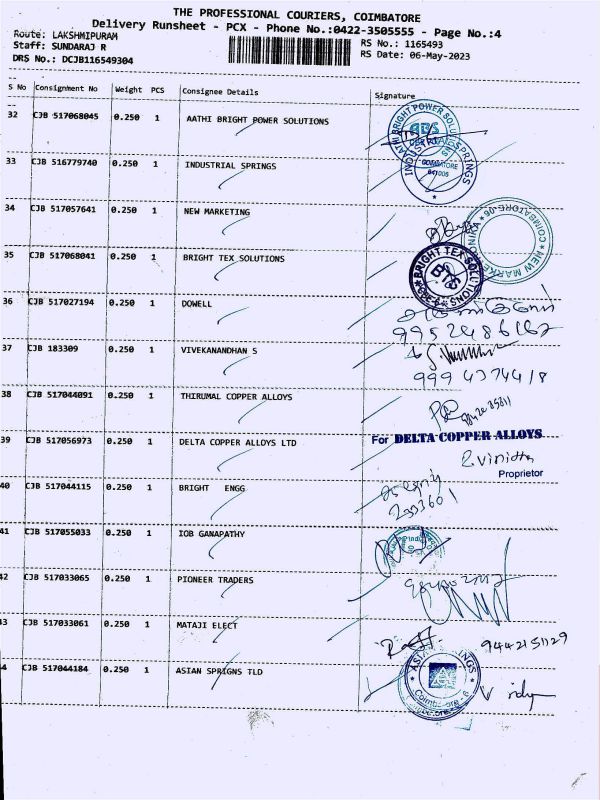 THE PROFESSIONAL COURIERS, COIMBATORE
Delivery Runsheet - PCX - Phone No.:0422-3505555 - Page No.:4
Route: LAKSHMIPURAM
Staff: SUNDARAJ R
RS No.: 1165493
DRS No.: DCJB116549304
RS Date: 06-May-2023
S No Consignment No Weight PCS Consignee Details Signature
32 CJB 517068045 0.250 1 AATHI BRIGHT POWER SOLUTIONS
33 CJB 516779740 0.250 1 INDUSTRIAL SPRINGS
34 CJB 517057641 0.250 1 NEW MARKETING
35 CJB 517068041 0.250 1 BRIGHT TEX SOLUTIONS
BRIGHT TEX SOLUTIONS
36 CJB 517027194 0.250 1 DOWELL
9952486162
37 CJB 183309 0.250 1 VIVEKANANDHAN S
999 4374418
38 CJB 517044091 0.250 1 THIRUMAL COPPER ALLOYS
39 CJB 517056973 0.250 1 DELTA COPPER ALLOYS LTD
For DELTA COPPER ALLOYS
Proprietor
40 CJB 517044115 0.250 1 BRIGHT ENGG
41 CJB 517055033 0.250 1 IOB GANAPATHY
42 CJB 517033065 0.250 1 PIONEER TRADERS
43 CJB 517033061 0.250 1 MATAJI ELECT
44 CJB 517044184 0.250 1 ASIAN SPRIGNS TLD